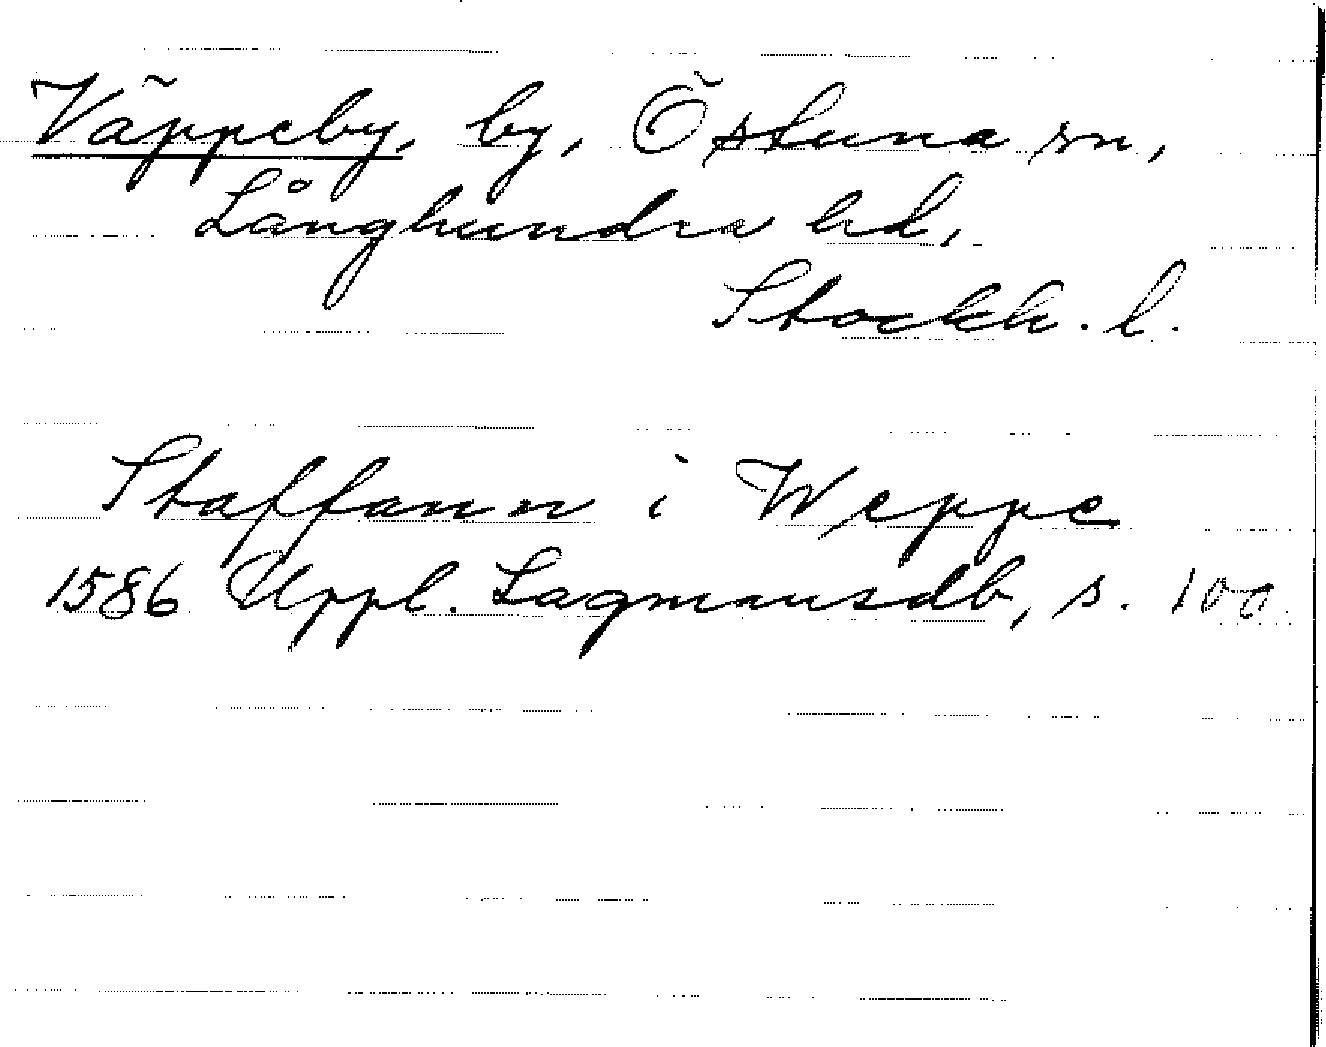 Väppeby, by, Östuna sn,
Långhundra hd,
Stockh. l.
Staffann i Weppe
1586 Uppl. Lagmansdb, s. 100.